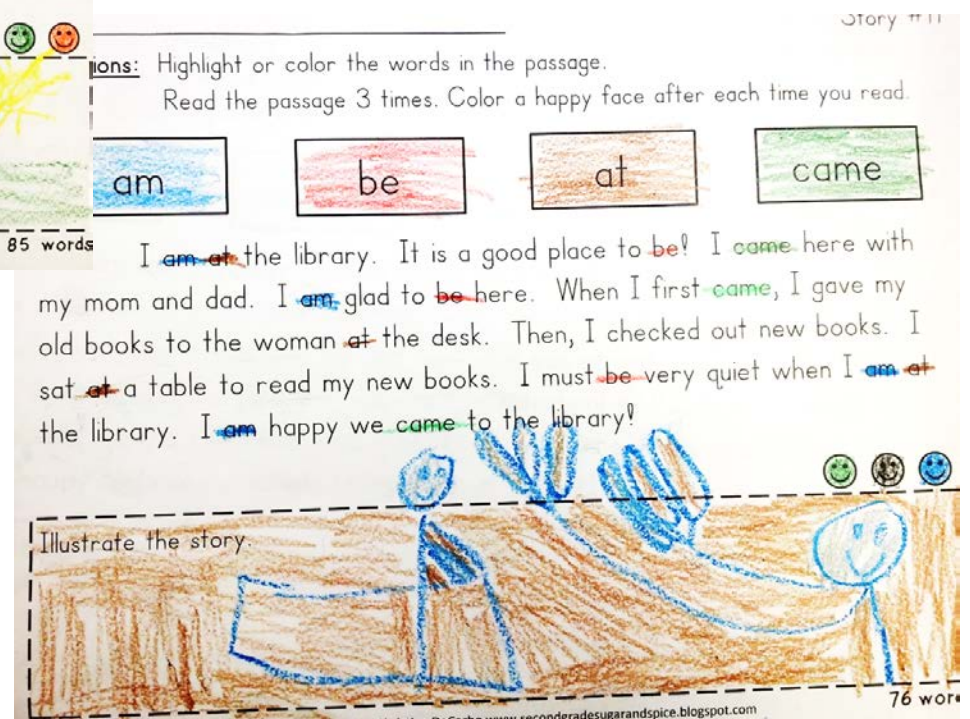 Story #11
ions: Highlight or color the words in the passage.
Read the passage 3 times. Color a happy face after each time you read.
am be at came
85 words
I am at the library. It is a good place to be! I came here with
my mom and dad. I am glad to be here. When I first came, I gave my
old books to the woman at the desk. Then, I checked out new books. I
sat at a table to read my new books. I must be very quiet when I am at
the library. I am happy we came to the library!
Illustrate the story.
76 wor
www.secondgradesugarandspice.blogspot.com